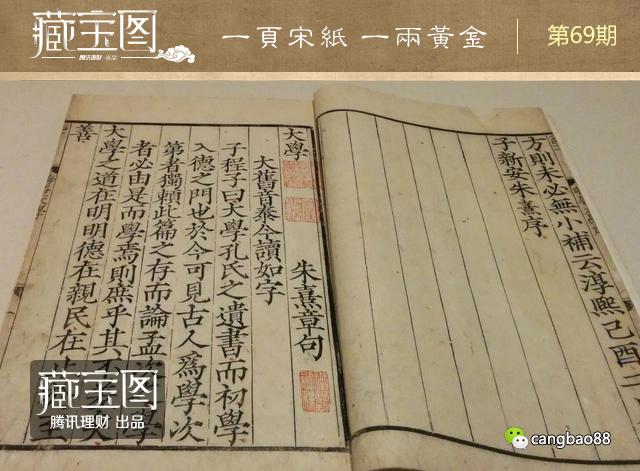 藏宝图
腾讯理财 出品
一頁宋紙 一兩黃金
第69期
方則未必無小補云淳熙己酉二
子新安朱熹序
大學 朱熹章句
大舊音泰今讀如字
子程子曰大學孔氏之遺書而初學
入德之門也於今可見古人爲學次
第者獨賴此篇之存而論孟次學
者必由是而學焉則庶乎其不
大學之道在明明德在親民在止至
善
藏宝图
腾讯理财 出品
cangbao88